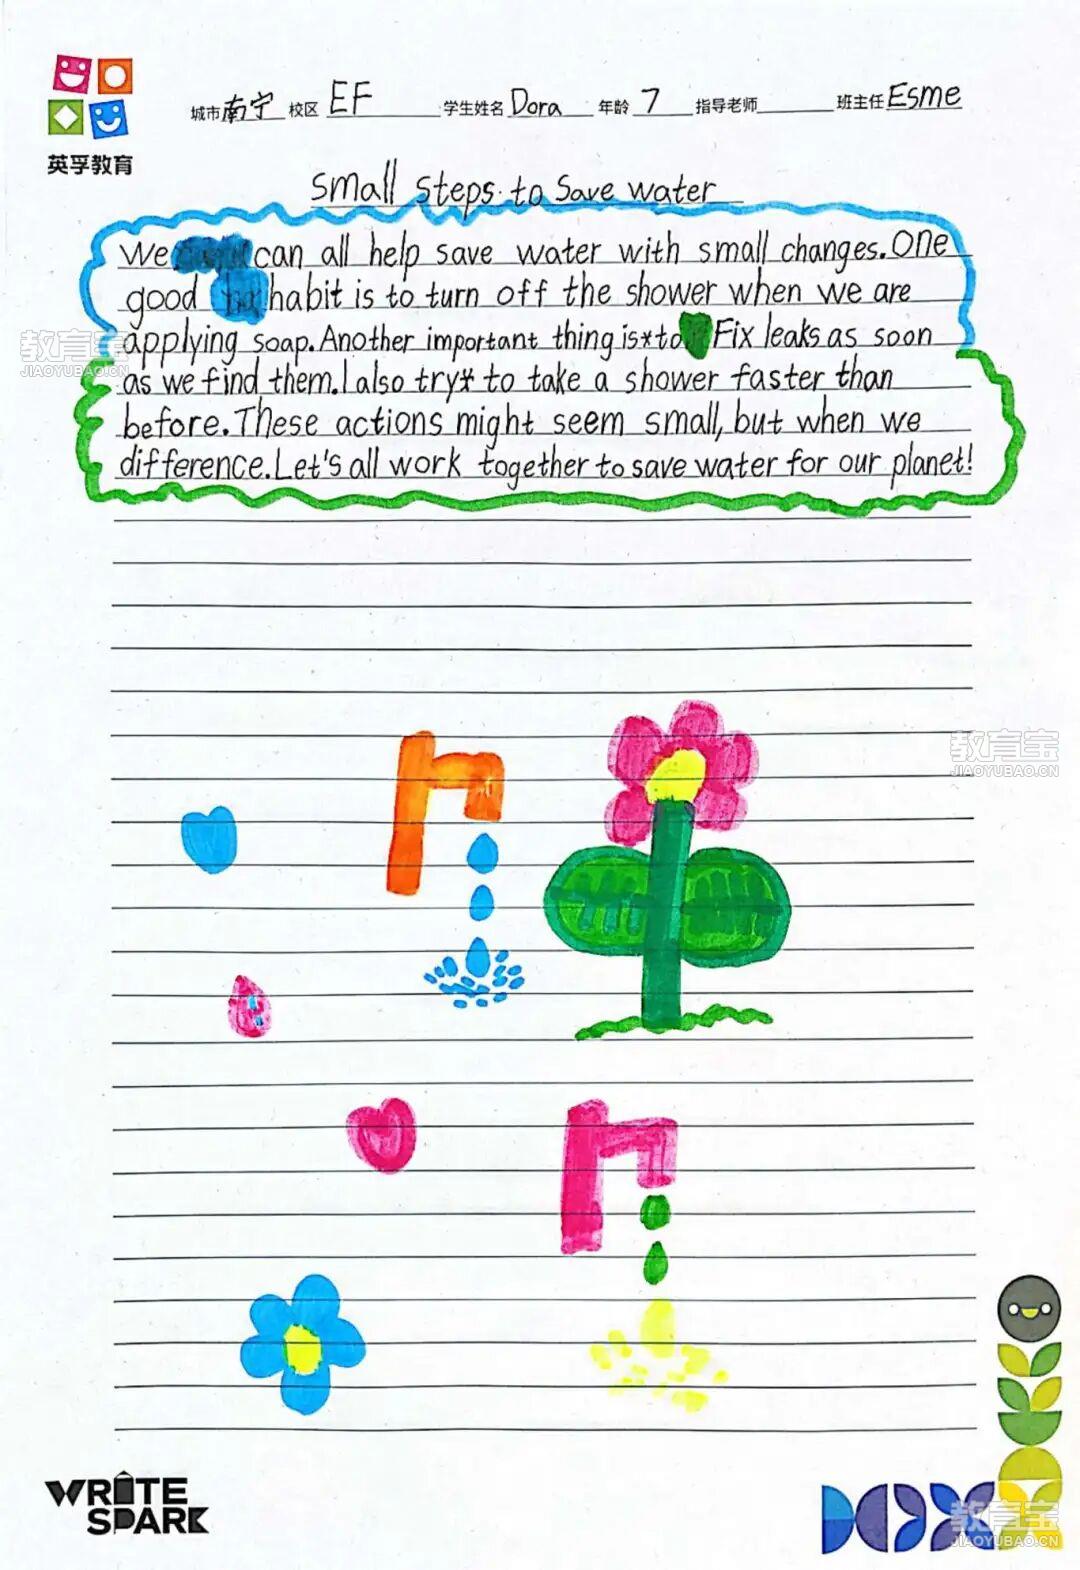 城市 南宁 校区 EF 学生姓名 Dora 年龄 7 指导老师 班主任 Esme
英孚教育
Small Steps to Save water
We can all help save water with small changes. One
good habit is to turn off the shower when we are
applying soap. Another important thing is*to Fix leaks as soon
as we find them. I also try* to take a shower faster than
before. These actions might seem small, but when we
difference. Let's all work together to save water for our planet!
教育宝
JIAOYUBAO.CN
教育宝
JIAOYUBAO.CN
WRITE
SPARK
教育宝
JIAOYUBAO.CN